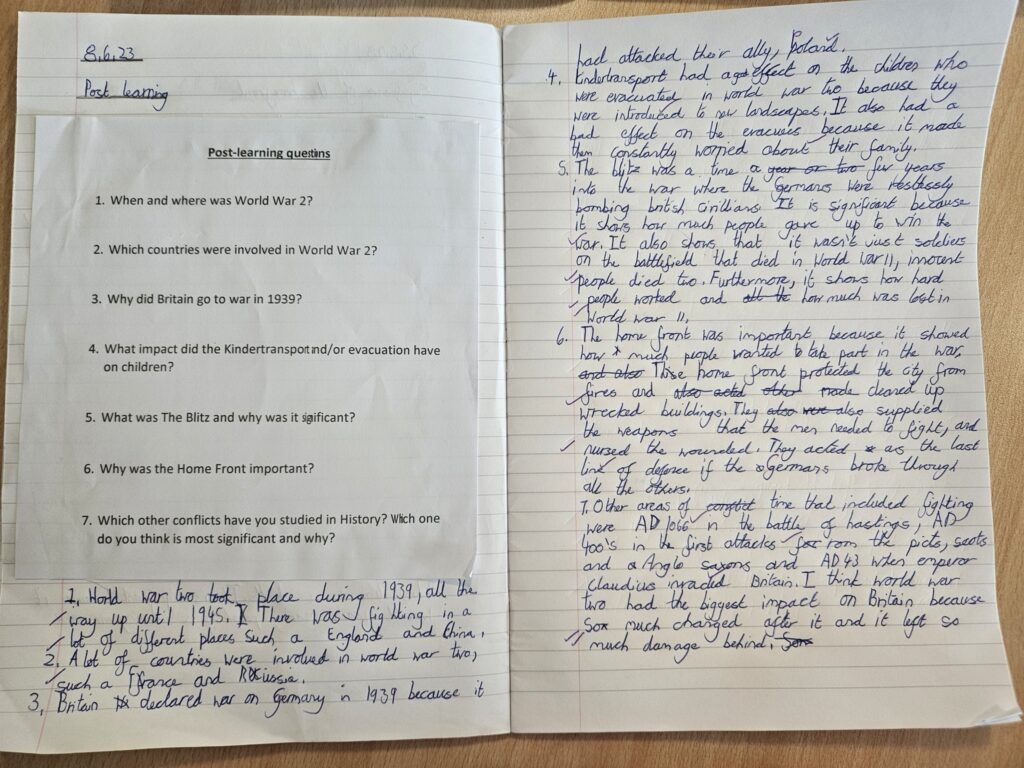 8.6.23
Post learning
Post-learning questions
1. When and where was World War 2?
2. Which countries were involved in World War 2?
3. Why did Britain go to war in 1939?
4. What impact did the Kindertransport and/or evacuation have
on children?
5. What was The Blitz and why was it significant?
6. Why was the Home Front important?
7. Which other conflicts have you studied in History? Which one
do you think is most significant and why?
1. World war two took place during 1939, all the
way up until 1945. There was fighting in a
lot of different places such a England and China.
2. A lot of countries were involved in world war two,
such a France and Russia.
3. Britain declared war on Germany in 1939 because it
had attacked their ally, Poland.
4. Kindertransport had a effect on the children who
were evacuated in world war two because they
were introduced to new landscapes. It also had a
bad effect on the evacuees because it made
them constantly worried about their family.
5. The blitz was a time a year or two few years
into the war where the Germans were restlessly
bombing british civillians. It is significant because
it shows how much people gave up to win the
war. It also shows that it wasn't just soldiers
on the battlefield that died in World War II, innocent
people died two. Furthermore, it shows how hard
people worked and all the how much was lost in
World war II.
6. The home front was important because it showed
how much people wanted to take part in the war,
and also These home front protected the city from
fires and also acted other made cleared up
wrecked buildings. They also were also supplied
the weapons that the men needed to fight, and
nursed the wounded. They acted as the last
line of defence if the germans broke through
all the others.
7. Other areas of conflict time that included fighting
were AD 1066 in the battle of hastings, AD
400's in the first attacks from the picts, scots
and a Anglo saxons and AD 43 when emperor
Claudius invaded Britain. I think world war
two had the biggest impact on Britain because
so much changed after it and it left so
much damage behind.